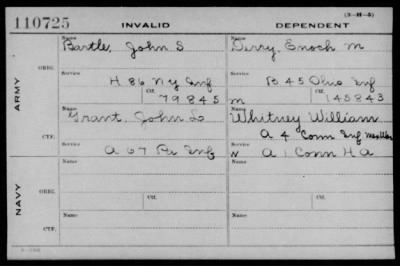 110725 INVALID DEPENDENT (3-H-5)
ARMY
ORIG.
Name Bartle, John S Name Derry, Enoch M
Service H 86 NY Inf Service B 45 Ohio Inf
Ctf. 79845 m Ctf. 145843
CTF.
Name Grant, John L Name Whitney William
A 4 Conn Inf
Service A 67 Pa Inf Service N A 1 Conn H A
NAVY
ORIG.
Name Name
Service Ctf. Service Ctf.
CTF.
Name Name